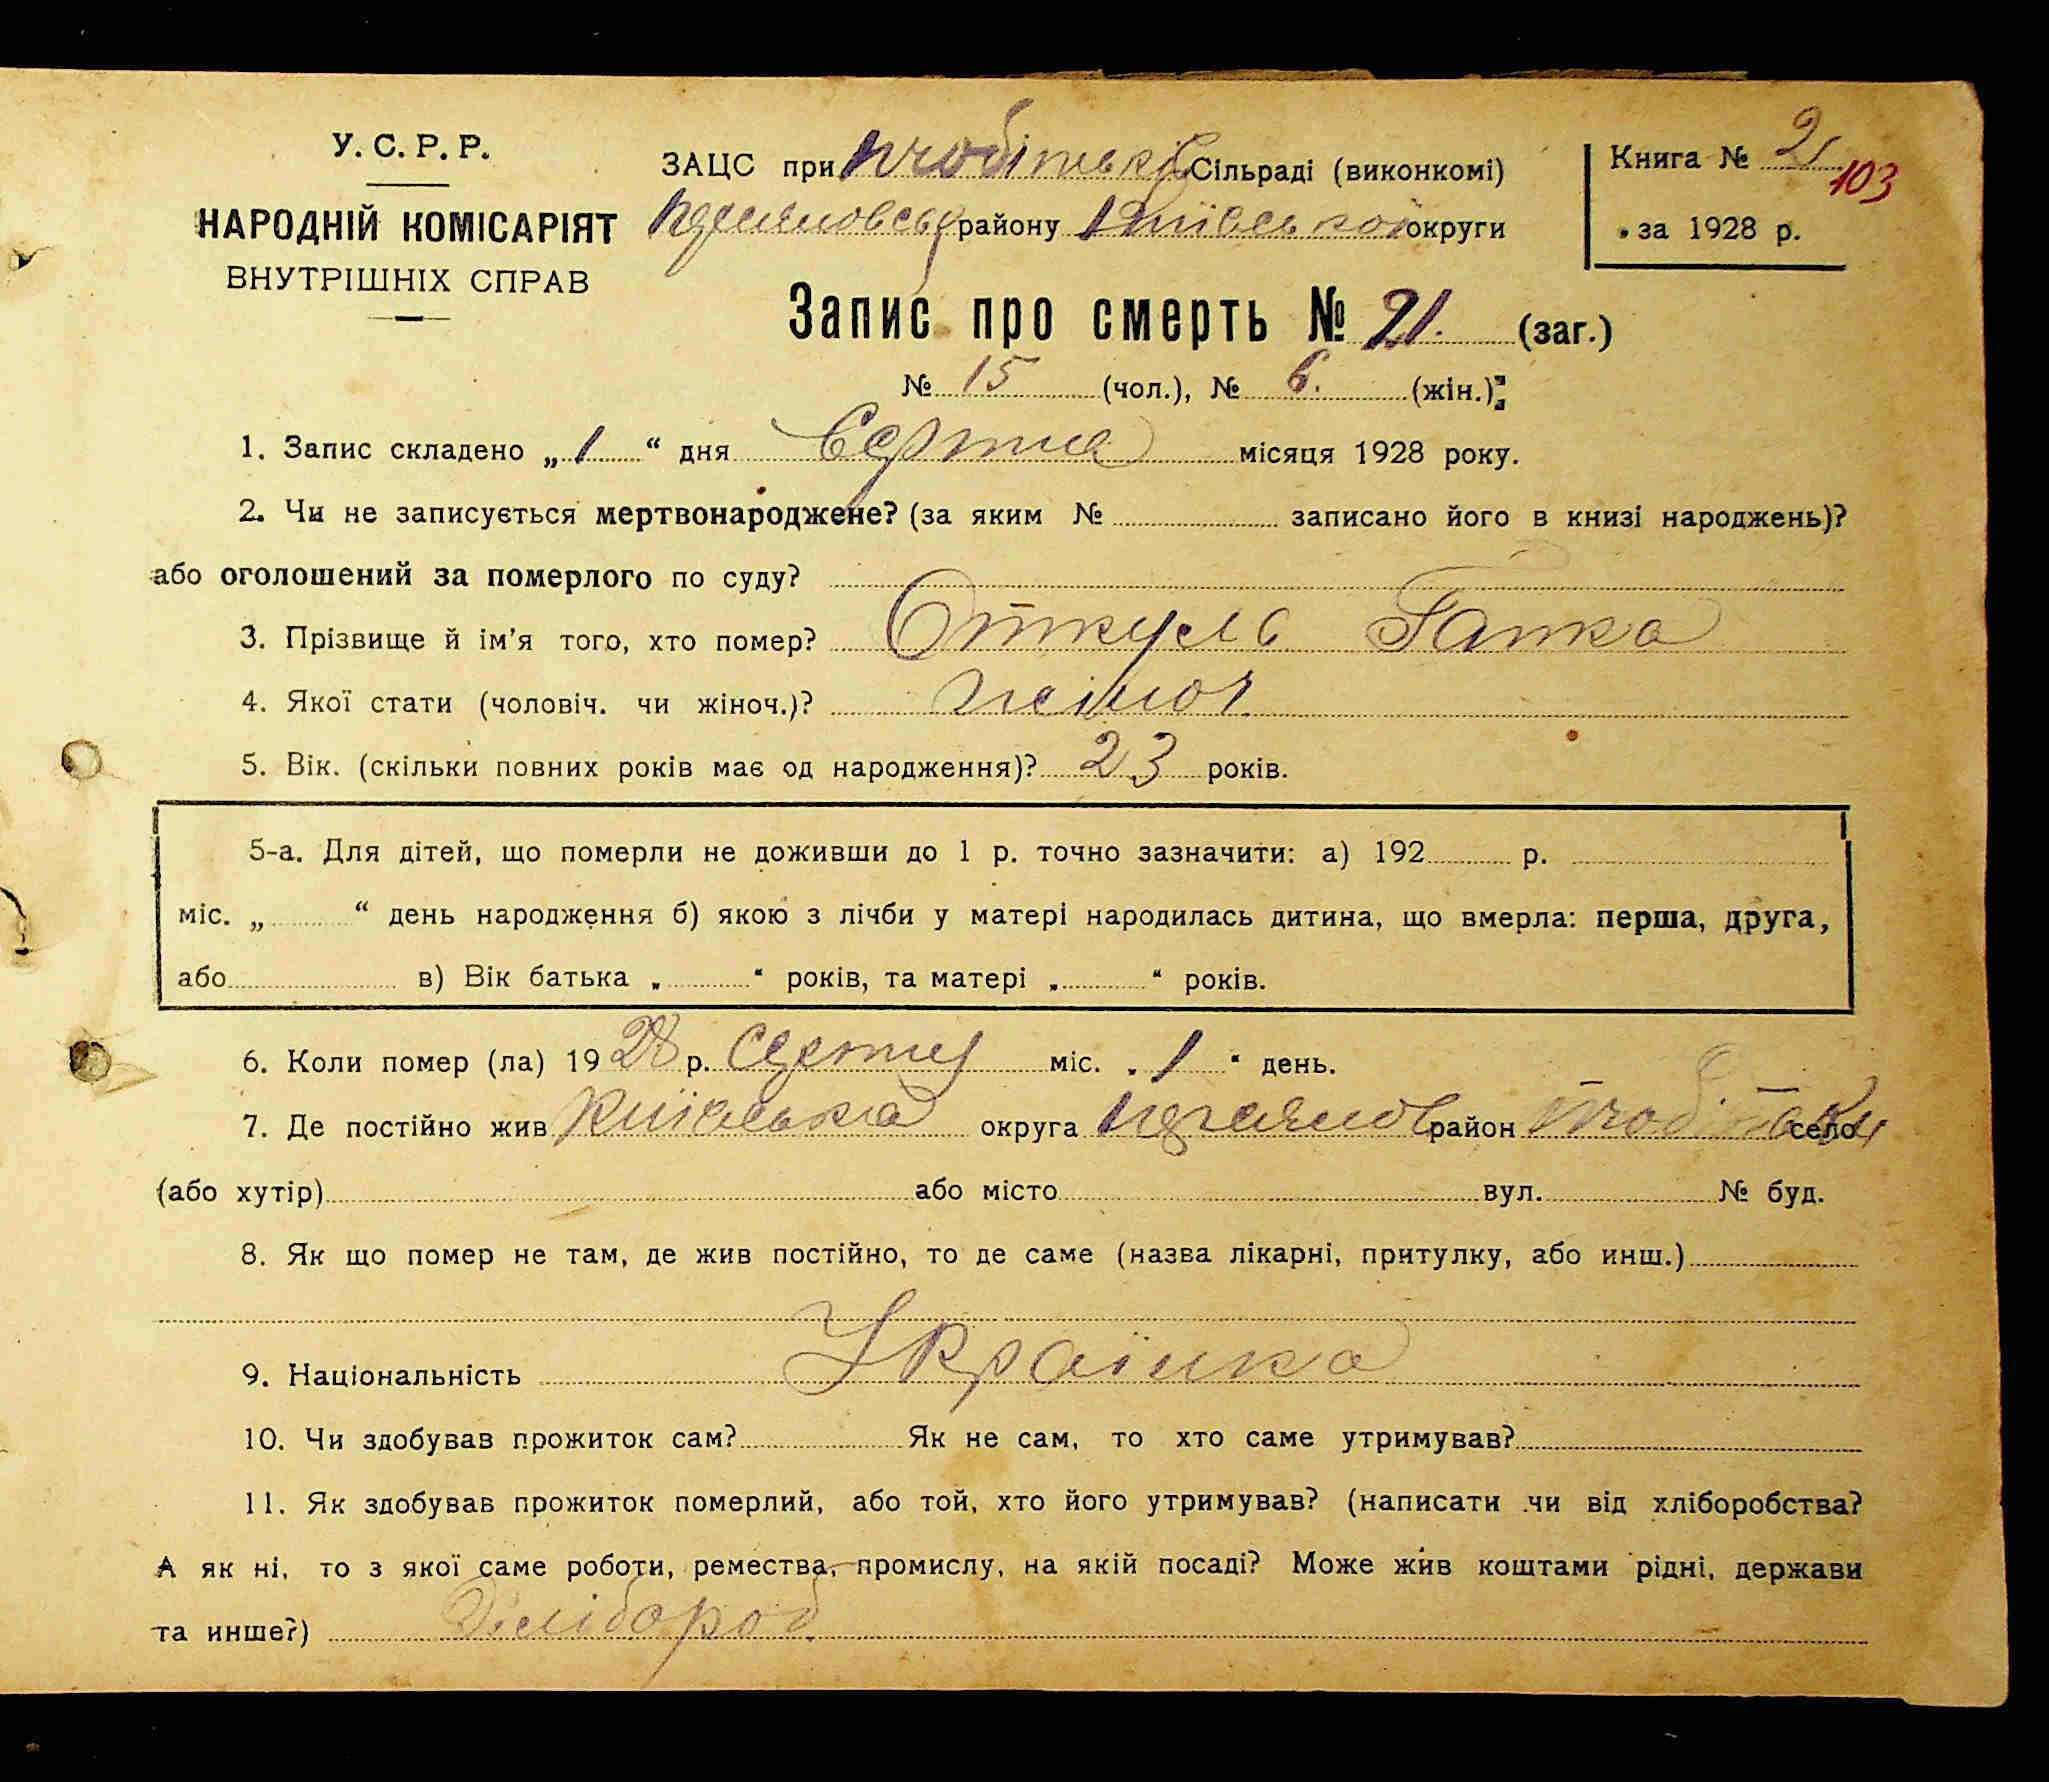 У. С. Р. Р.
НАРОДНІЙ КОМІСАРІЯТ
ВНУТРІШНІХ СПРАВ
ЗАЦС при Сільраді (виконкомі)
району Київської округи
Книга № 2
103
за 1928 р.
Запис про смерть № 21. (заг.)
№ 15 (чол.), № 6. (жін.);
1. Запис складено „ 1 “ дня Серпня місяця 1928 року.
2. Чи не записується мертвонароджене? (за яким № записано його в книзі народжень)?
або оголошений за померлого по суду?
3. Прізвище й ім’я того, хто помер? Гапка
4. Якої стати (чоловіч. чи жіноч.)? жіноч.
5. Вік. (скільки повних років має од народження)? 23 років.
5-а. Для дітей, що померли не доживши до 1 р. точно зазначити: а) 192 р.
міс. „ “ день народження б) якою з лічби у матері народилась дитина, що вмерла: перша, друга,
або в) Вік батька „ “ років, та матері „ “ років.
6. Коли помер (ла) 1928 р. міс. „ 1 “ день.
7. Де постійно жив Київська округа район село
(або хутір) або місто вул. № буд.
8. Як що помер не там, де жив постійно, то де саме (назва лікарні, притулку, або инш.)
9. Національність Українка
10. Чи здобував прожиток сам? Як не сам, то хто саме утримував?
11. Як здобував прожиток померлий, або той, хто його утримував? (написати чи від хліборобства?
А як ні, то з якої саме роботи, ремества, промислу, на якій посаді? Може жив коштами рідні, держави
та инше?) Хлібороб.